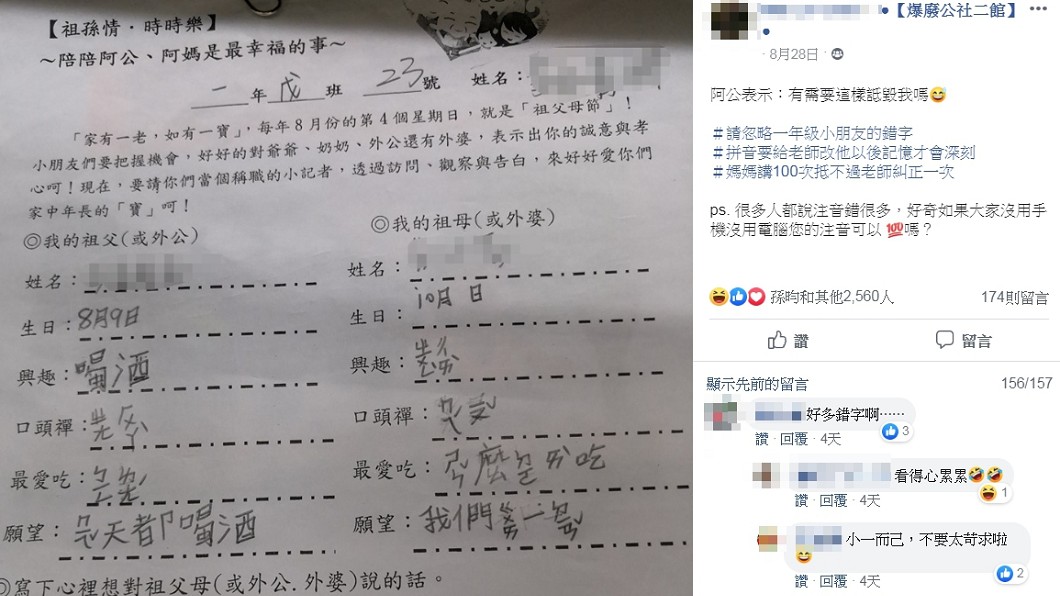 【祖孫情．時時樂】
～陪陪阿公、阿媽是最幸福的事～
一年戊班 23號 姓名：
「家有一老，如有一寶」，每年8月份的第4個星期日，就是「祖父母節」！
小朋友們要把握機會，好好的對爺爺、奶奶、外公還有外婆，表示出你的誠意與孝
心呵！現在，要請你們當個稱職的小記者，透過訪問、觀察與告白，來好好愛你們
家中年長的「寶」呵！
◎我的祖父(或外公)
姓名：
生日：8月9日
興趣：喝酒
口頭禪：
最愛吃：
願望：天都喝酒
◎我的祖母(或外婆)
姓名：
生日：10月 日
興趣：
口頭禪：
最愛吃：麼吃
願望：我們一
◎寫下心裡想對祖父母(或外公.外婆)說的話。
【爆廢公社二館】
8月28日
阿公表示：有需要這樣詆毀我嗎😅
＃請忽略一年級小朋友的錯字
＃拼音要給老師改他以後記憶才會深刻
＃媽媽講100次抵不過老師糾正一次
ps. 很多人都說注音錯很多，好奇如果大家沒用手
機沒用電腦您的注音可以 💯嗎？
孫昀和其他2,560人 174則留言
讚 留言
顯示先前的留言 156/157
好多錯字啊……
讚 · 回覆 · 4天 3
看得心累累🤣🤣
讚 · 回覆 · 4天 1
小一而己，不要太苛求啦
😄
讚 · 回覆 · 4天 2